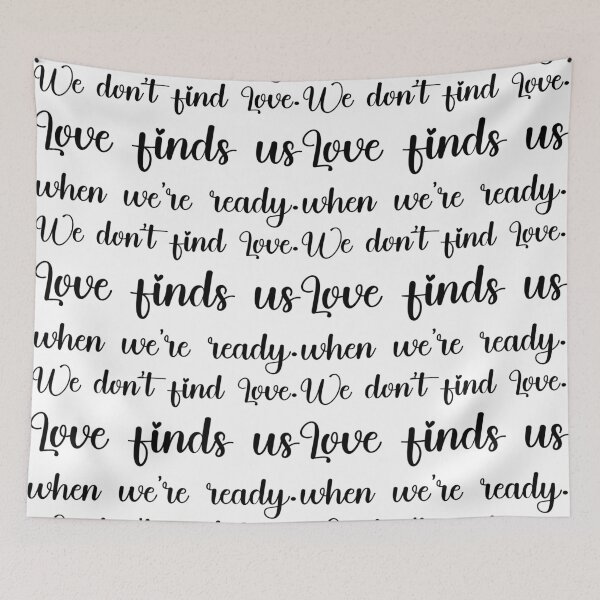 We don't find Love. We don't find Love.
Love finds us Love finds us
when we're ready. when we're ready.
We don't find Love. We don't find Love.
Love finds us Love finds us
when we're ready. when we're ready.
We don't find Love. We don't find Love.
Love finds us Love finds us
when we're ready. when we're ready.